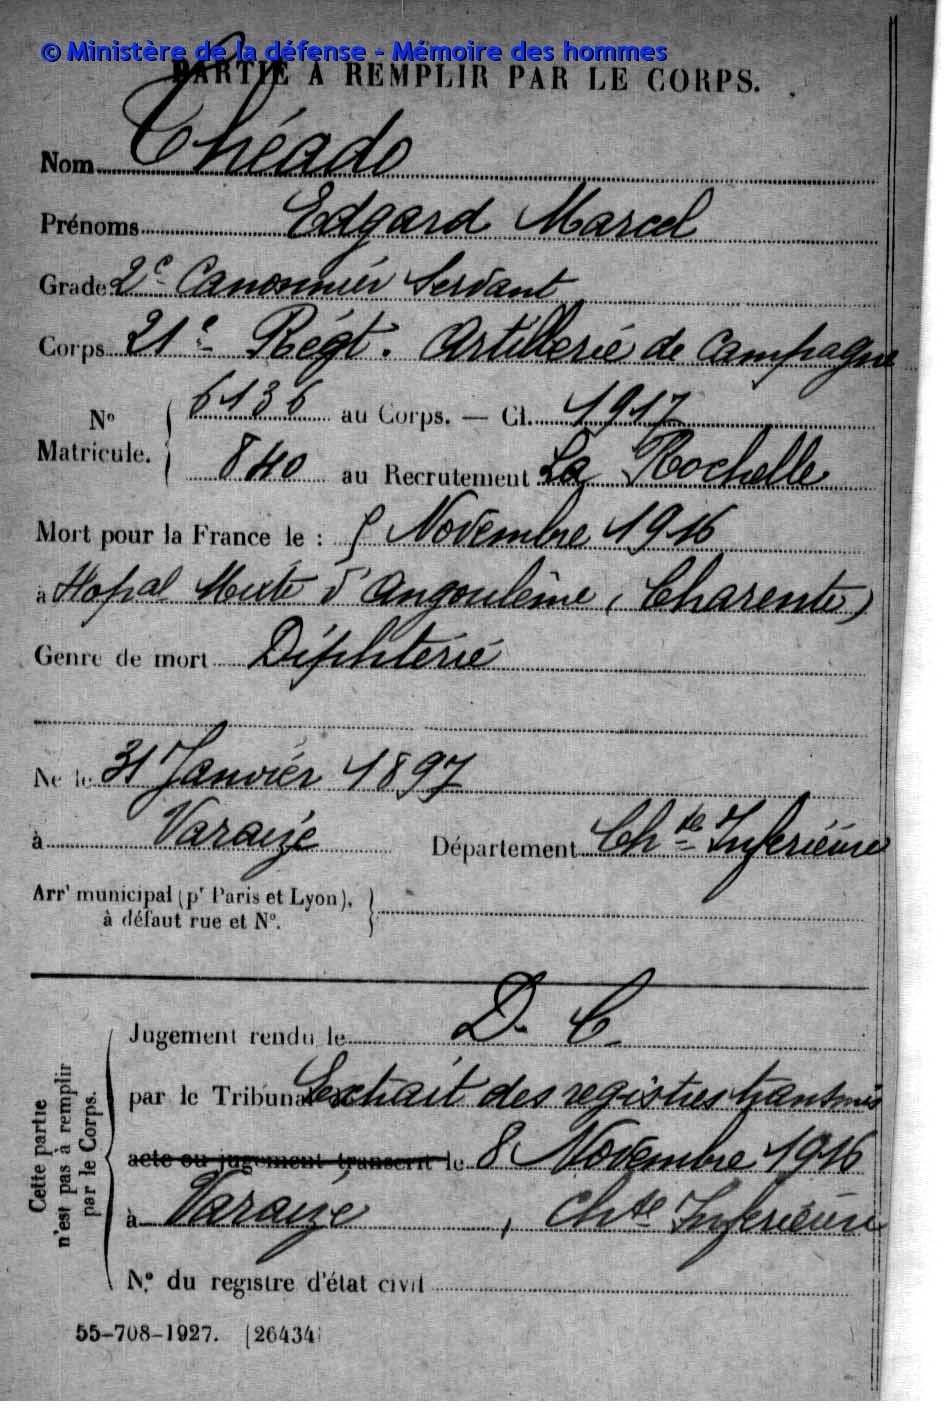 © Ministère de la défense - Mémoire des hommes
PARTIE A REMPLIR PAR LE CORPS.
Nom Théado
Prénoms Edgard Marcel
Grade 2e Canonnier Servant
Corps 21e Régt. Artillerie de Campagne
No Matricule. 6136 au Corps. — Cl. 1917
840 au Recrutement La Rochelle
Mort pour la France le : 5 Novembre 1916
à Hopal Mixte d'Angoulême (Charente)
Genre de mort Diphterie
Né le 31 Janvier 1897
à Varaize Département Chte Inferieure
Arrt municipal (pr Paris et Lyon),
à défaut rue et No.
Cette partie
n'est pas à remplir
par le Corps.
Jugement rendu le D. C.
par le Tribunal de Extrait des registres transmis
acte ou jugement transcrit le 8 Novembre 1916
à Varaize, Chte Inferieure
No. du registre d'état civil
55-708-1927. [26434]